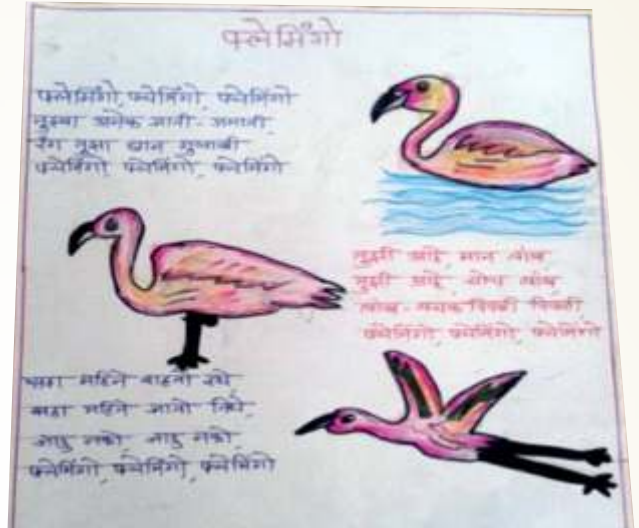 फ्लेमिंगो
फ्लेमिंगो, फ्लेमिंगो, फ्लेमिंगो
तुझ्या अनेक जाती-जमाती
रंग तुझा छान गुलाबी
फ्लेमिंगो, फ्लेमिंगो, फ्लेमिंगो
तुझी आहे मान लांब
तुझी आहे चोच लांब
लांब
फ्लेमिंगो, फ्लेमिंगो, फ्लेमिंगो
सहा महिने राहतो इथे
सहा महिने जातो तिथे,
जाऊ नको, जाऊ नको
फ्लेमिंगो, फ्लेमिंगो, फ्लेमिंगो